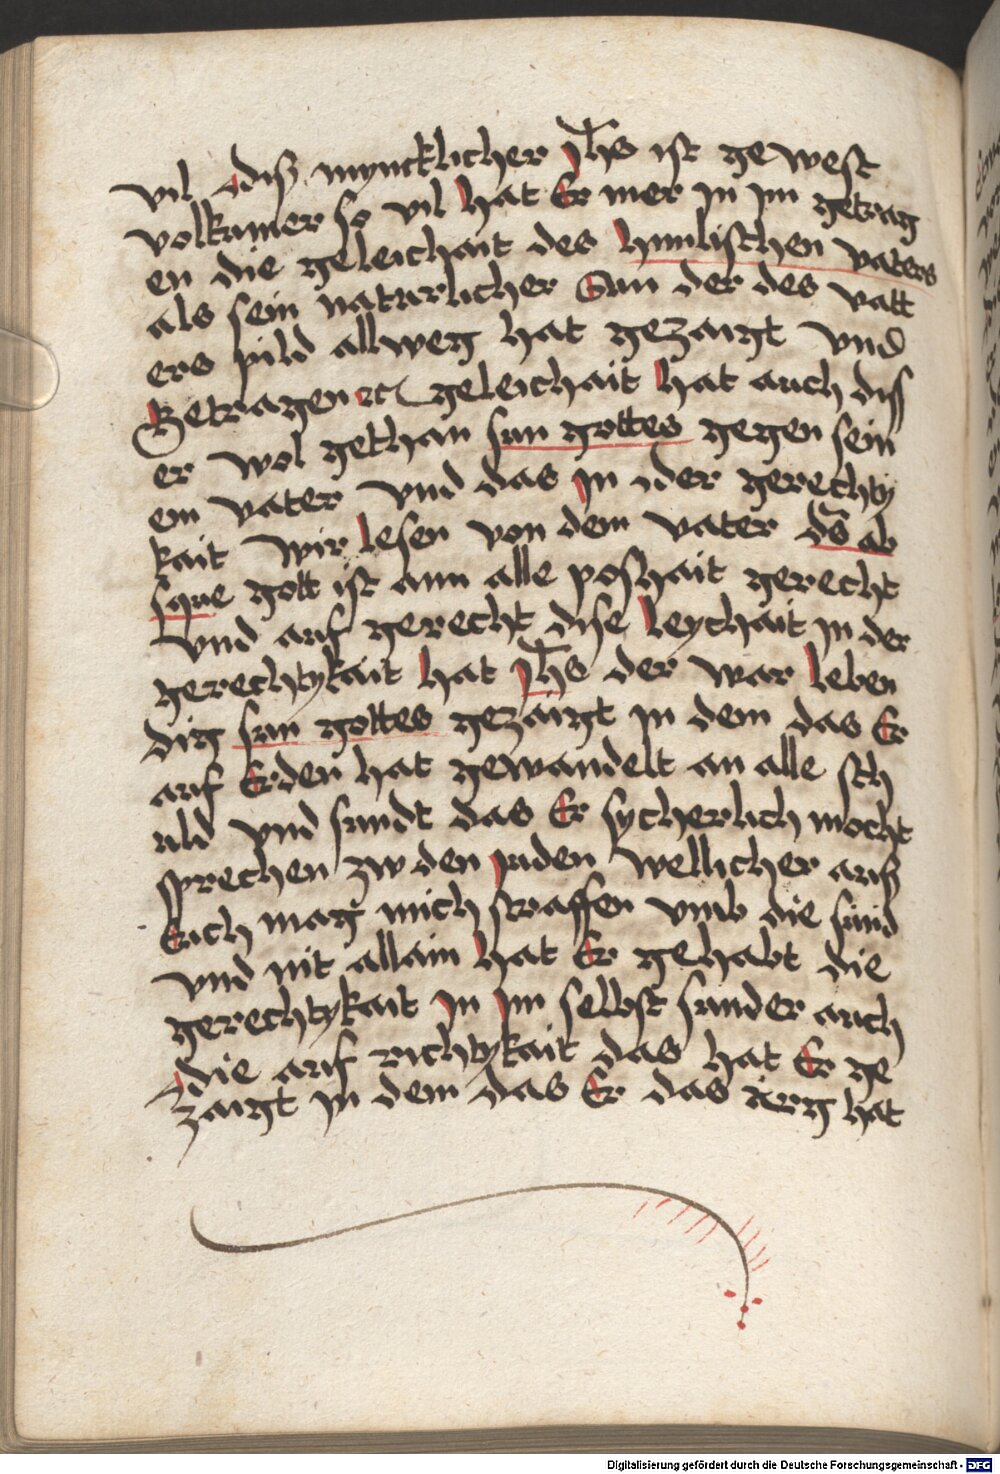 vil diß mynicklicher Jhs ist gewest
volkumer so vil hat Er mer jn jm getrag
en die geleichait des himlischen vaters
als sein naturlicher Sun der des vatt
ers pild allweg hat gezaigt vnd
Getragen ꝛc geleichait hat auch diß
er wol gethan sun gottes gegen sein
em vater vnd das jn der gerechty
kait wir lesen von dem vater ds̄ ab
sque gott ist ann alle poshait gerecht
vnd auf gerecht dise leychait jn der
gerechtykait hat Jhs der war leben
dig sun gottes gezaigt jn dem das Er
auf Erden hat gewandelt an alle sch
uld vnd sundt das Er sycherlich mocht
sprechen zw den juden wellicher auß
Euch mag mich straffen vmb die sünd
vnd nit allain hat Er gehabt die
gerechtykait jn jm selbst sunder auch
die auf richtykait das hat Er ge
zaigt jn dem das Er das hat
Digitalisierung gefördert durch die Deutsche Forschungsgemeinschaft - DFG